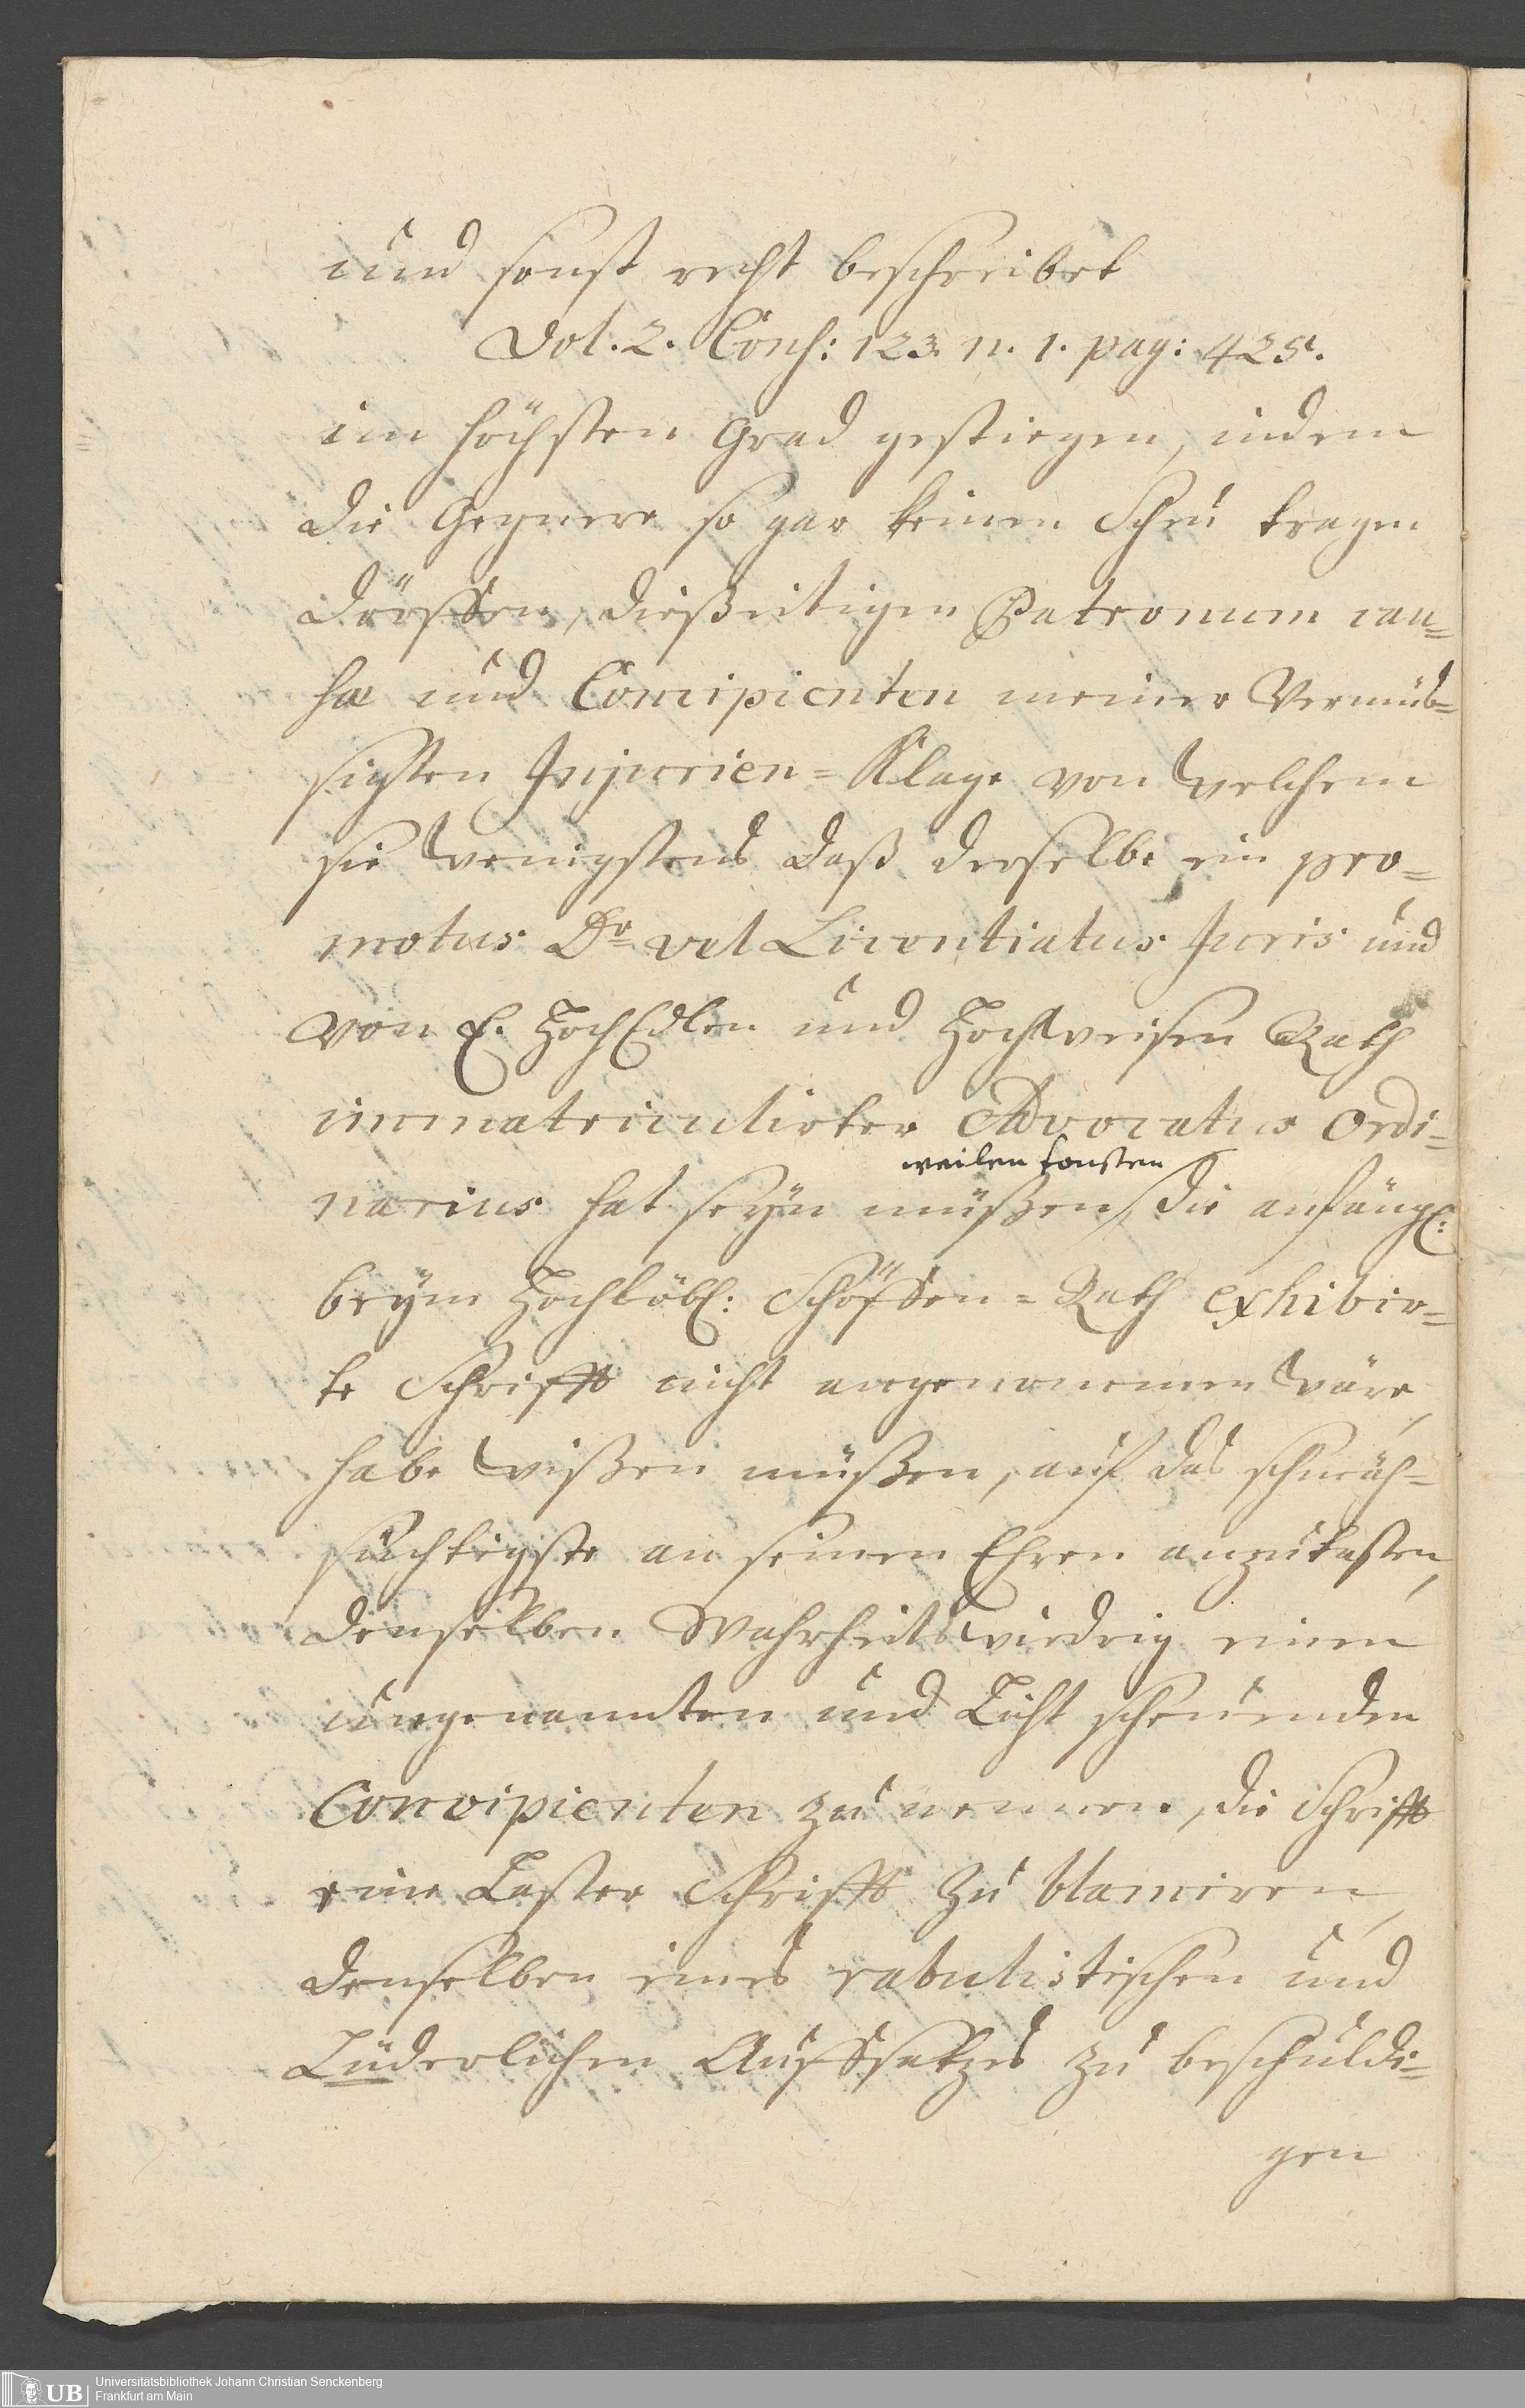 und sonst recht beschreibet
Vol. 2. Cons: 123. n. 1. pag: 425.
im höchsten Grad gestiegen, indem
die Gegnere so gar keinen Scheu tragen
dörffen, dießeitigen Patronum cau=
sæ und Concipienten meiner vermüs=
sigten Injurien=Klage von welchem
sie wenigstens daß derselbe ein pro=
motus Dr. vel Licentiatus Juris und
von E. HochEdlen und Hochweisen Rath
immatriculirter Advocatus Ordi=
weilen sonsten
narius hat seyn müßen, die anfängl:
beym Hochlöbl: Schöffen=Rath exhibir=
te Schrifft nicht angenommen wäre,
habe wißen müßen, auf das schmäh=
süchtigste an seinen Ehren anzutasten,
denselben Wahrheits wiedrig einen
ungenannten und Licht scheuenden
Concipienten zu nennen, die Schrifft
eine Laster Schrifft zu blamiren,
denselben eines rabulistischen und
Lüderlichen Auffsatzes zu beschuldi=
gen
UB
Universitätsbibliothek Johann Christian Senckenberg
Frankfurt am Main